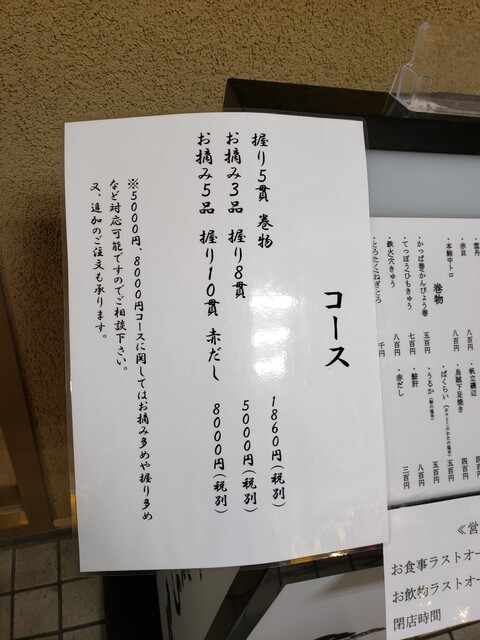 コース
握り5貫 巻物 1860円(税別)
お摘み3品 握り8貫 5000円(税別)
お摘み5品 握り10貫 赤だし 8000円(税別)
※5000円、8000円コースに関してはお摘み多めや握り多め
など対応可能ですのでご相談下さい。
又、追加のご注文も承ります。
・雲丹
・赤貝 八百円
・本鮪中トロ 八百円
巻物
・かっぱ巻かんぴょう巻 五百円
・てっぽうひもきゅう 七百円
・鉄火穴きゅう 八百円
・とろたくねぎとろ 千円
・帆立磯辺
・烏賊下足焼き 四百円
・ばくらい 五百円
・うるか 五百円
・鮟肝 八百円
・赤だし 三百円
≪営
お食事ラストオー
お飲物ラストオー
閉店時間